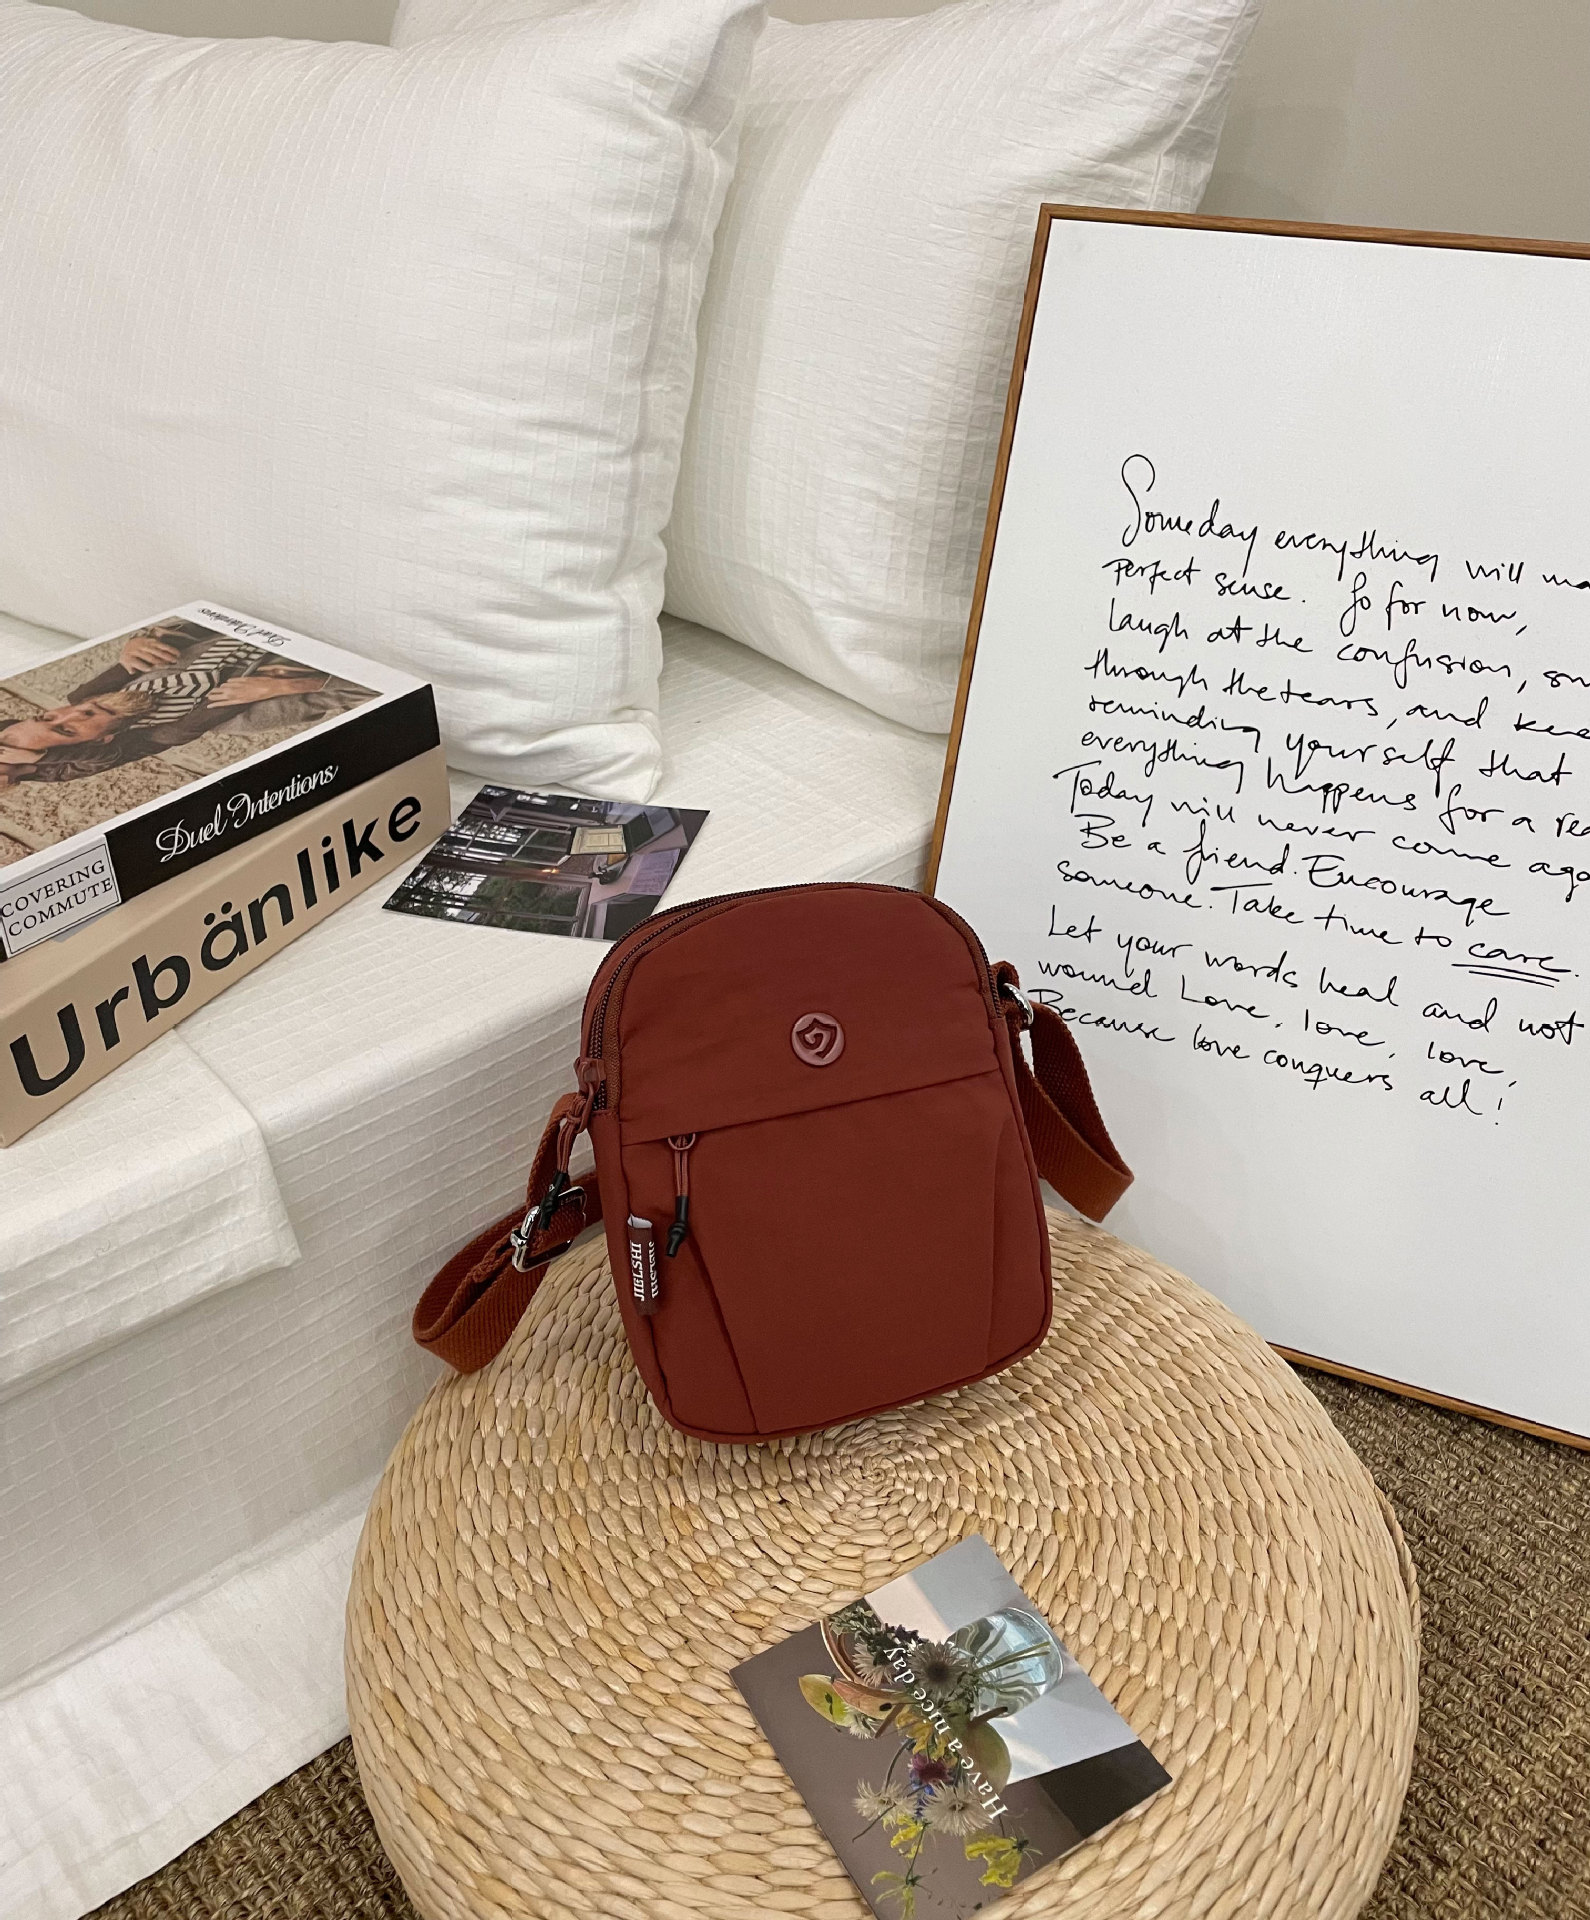 Duel Intentions
Duel Intentions
COVERING
COMMUTE
Urbänlike
Someday everything will ma
perfect sense. So for now,
laugh at the confusion, sm
through the tears, and kee
reminding yourself that
everything happens for a rea
Today will never come aga
Be a friend. Encourage
someone. Take time to care.
Let your words heal and not
wound Love, love, love,
Because love conquers all!
JIELSHI
Have a nice day